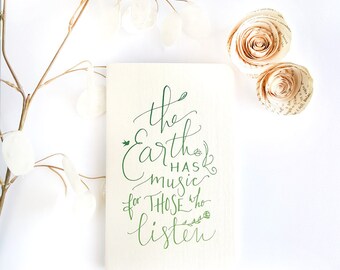 the
Earth
HAS
music
for THOSE who
listen